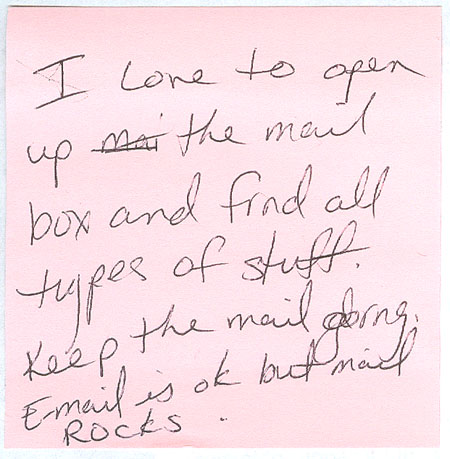 I love to open
up mai the mail
box and find all
types of stuff.
Keep the mail going.
E-mail is ok but mail
ROCKS.